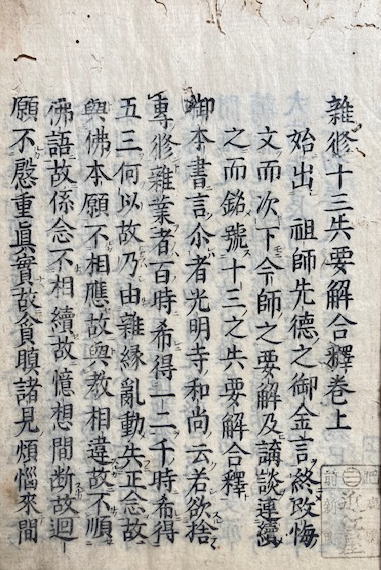 雜修十三失要解合釋卷上
始出祖師先德之御金言終改悔
文而次下令師之要解及講談連續
之而銘號十三之失要解合釋
御本書言尒者光明寺和尚云若欲捨
專修雜業者百時希得一二千時希得
五三何以故乃由雜緣亂動失正念故
與佛本願不相應故與教相違故不順
佛語故係念不相續故憶想間断故迴
願不慇重眞實故貪瞋諸見煩惱來間
近江屋